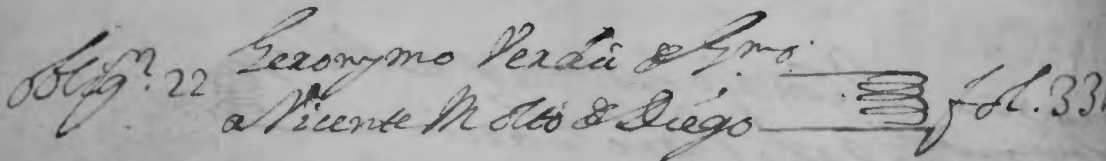 obligon. 22 Geronymo Verdú de Gmo. fol. 33
a Vicente Moltó de Diego